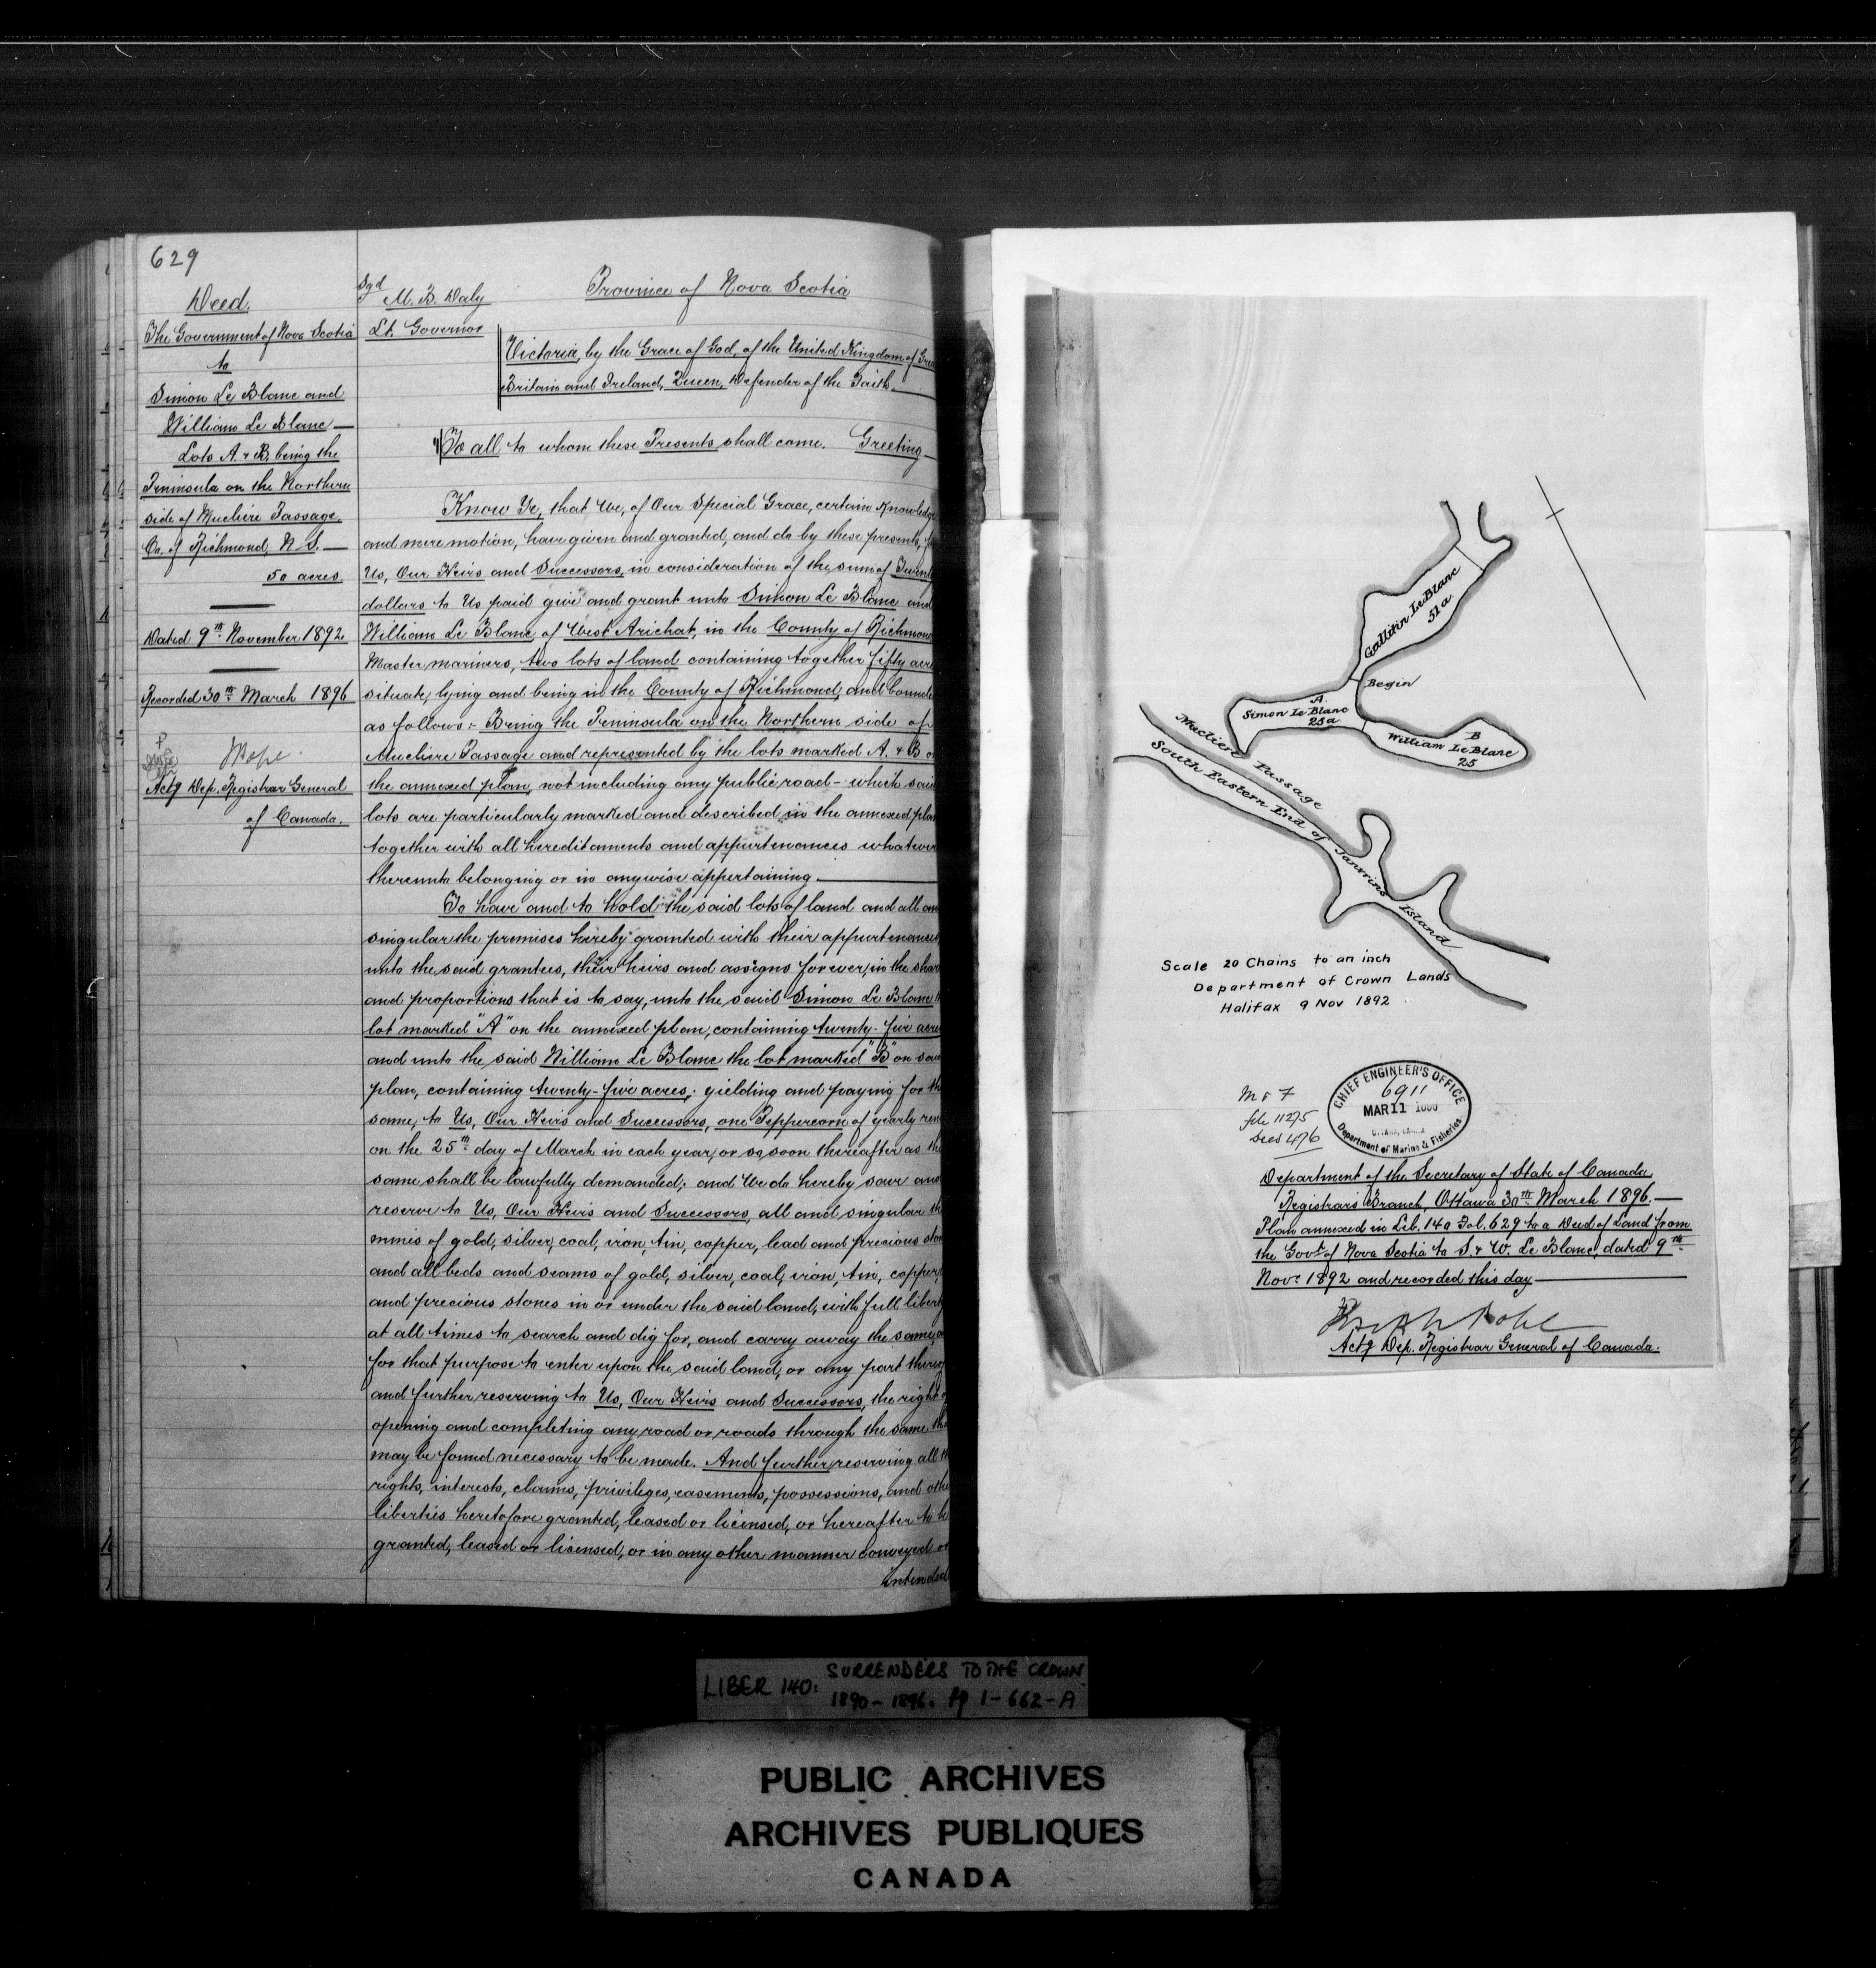 629
Deed.
The Government of Nova Scotia
to
Simon Le Blanc and
William Le Blanc —
Lots A. & B, being the
Peninsula on the Northern
side of Mucliere Passage,
Co. of Richmond, N. S. —
50 acres.
Dated 9th November 1892.
Recorded 30th March 1896
P
Mope
Actg Dep. Registrar General
of Canada.
Sgd M. B. Daly
Lt. Governor
Province of Nova Scotia
Victoria, by the Grace of God, of the United Kingdom of
Britain and Ireland, Queen, Defender of the Faith —
To all to whom these Presents shall come. Greeting —
Know Ye, that We, of Our Special Grace, certain Knowledge
and mere motion, have given and granted, and do by these presents,
Us, Our Heirs and Successors, in consideration of the sum of
dollars to Us paid give and grant unto Simon Le Blanc and
William Le Blanc of West Arichat, in the County of Richmond
Master mariners, two lots of land containing together fifty acre
situate, lying and being in the County of Richmond, and
as follows:- Being the Peninsula on the Northern side of
Mucliere Passage and represented by the lots marked A. & B
the annexed plan, not including any public road – which said
lots are particularly marked and described in the annexed plan
together with all hereditaments and appurtenances whatever
thereunto belonging or in anywise appertaining. —
To have and to hold the said lots of land and all
singular the premises hereby granted with their appurtenances
unto the said grantees, their heirs and assigns forever, in the
and proportions that is to say, unto the said Simon Le Blanc
lot marked "A" on the annexed plan, containing twenty-five acre
and unto the said William Le Blanc the lot marked "B" on
plan, containing twenty-five acres; yielding and paying for
same, to Us, Our Heirs and Successors, one Peppercorn of yearly
on the 25th day of March in each year, or so soon thereafter as
same shall be lawfully demanded; and We do hereby save and
reserve to Us, Our Heirs and Successors, all and singular
mines of gold, silver, coal, iron, tin, copper, lead and precious
and all beds and seams of gold, silver, coal, iron, tin, copper,
and precious stones in or under the said land, with full liberty
at all times to search and dig for, and carry away the same,
for that purpose to enter upon the said land, or any part
and further reserving to Us, Our Heirs and Successors, the right
opening and completing any road or roads through the same
may be found necessary to be made. And further reserving all
rights, interests, claims, privileges, easements, possessions, and
liberties heretofore granted, leased or licensed, or hereafter to
granted, leased or licensed, or in any other manner conveyed
Intended
Gallitin LeBlanc
51 a
Begin
A.
Simon Le Blanc
25 a
B
William LeBlanc
25
Mucliere Passage
South Eastern End of Janvrins Island
Scale 20 Chains to an inch
Department of Crown Lands
Halifax 9 Nov 1892
M & F
file 11275
Deed 476
CHIEF ENGINEER'S OFFICE
6911
MAR 11
Department of Marine & Fisheries
Department of the Secretary of State of Canada
Registrar's Branch, Ottawa 30th March 1896. —
Plan annexed in Lib. 140 Fol. 629 to a Deed of Land from
the Govt of Nova Scotia to S. & W. Le Blanc, dated 9th
Novr 1892 and recorded this day —
Joseph Pope
Actg Dep. Registrar General of Canada.
LIBER 140: SURRENDERS TO THE CROWN
1890 – 1896. pp 1 – 662 – A
PUBLIC ARCHIVES
ARCHIVES PUBLIQUES
CANADA